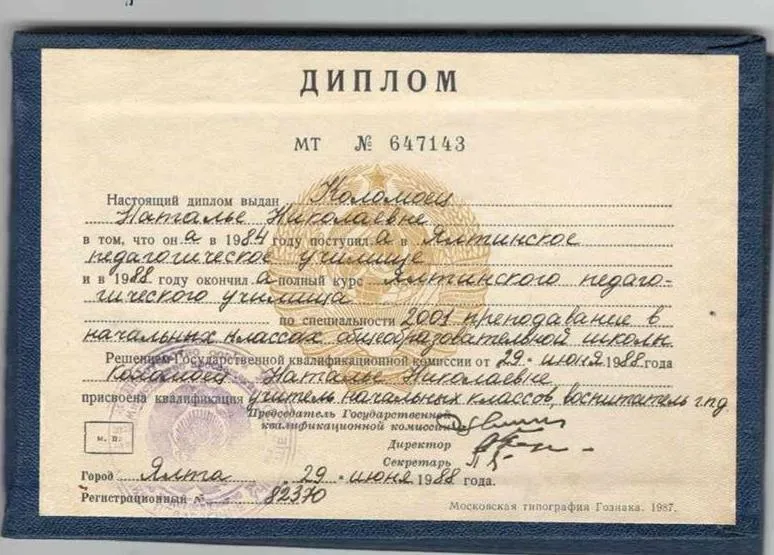 ДИПЛОМ
МТ № 647143
Настоящий диплом выдан Коломоец
Наталье Николаевне
в том, что он а в 1984 году поступил а в Ялтинское
педагогическое училище
и в 1988 году окончил а полный курс Ялтинского педаго-
гического училища
по специальности 2001 преподавание в
начальных классах общеобразовательной школы
Решением Государственной квалификационной комиссии от 29 июня 1988 года
Коломоец Наталье Николаевне
присвоена квалификация учитель начальных классов, воспитатель г.п.д.
Председатель Государственной
квалификационной комиссии
м. п.
Директор
Секретарь
Город Ялта 29 июня 1988 года.
Регистрационный № 82370
Московская типография Гознака. 1987.